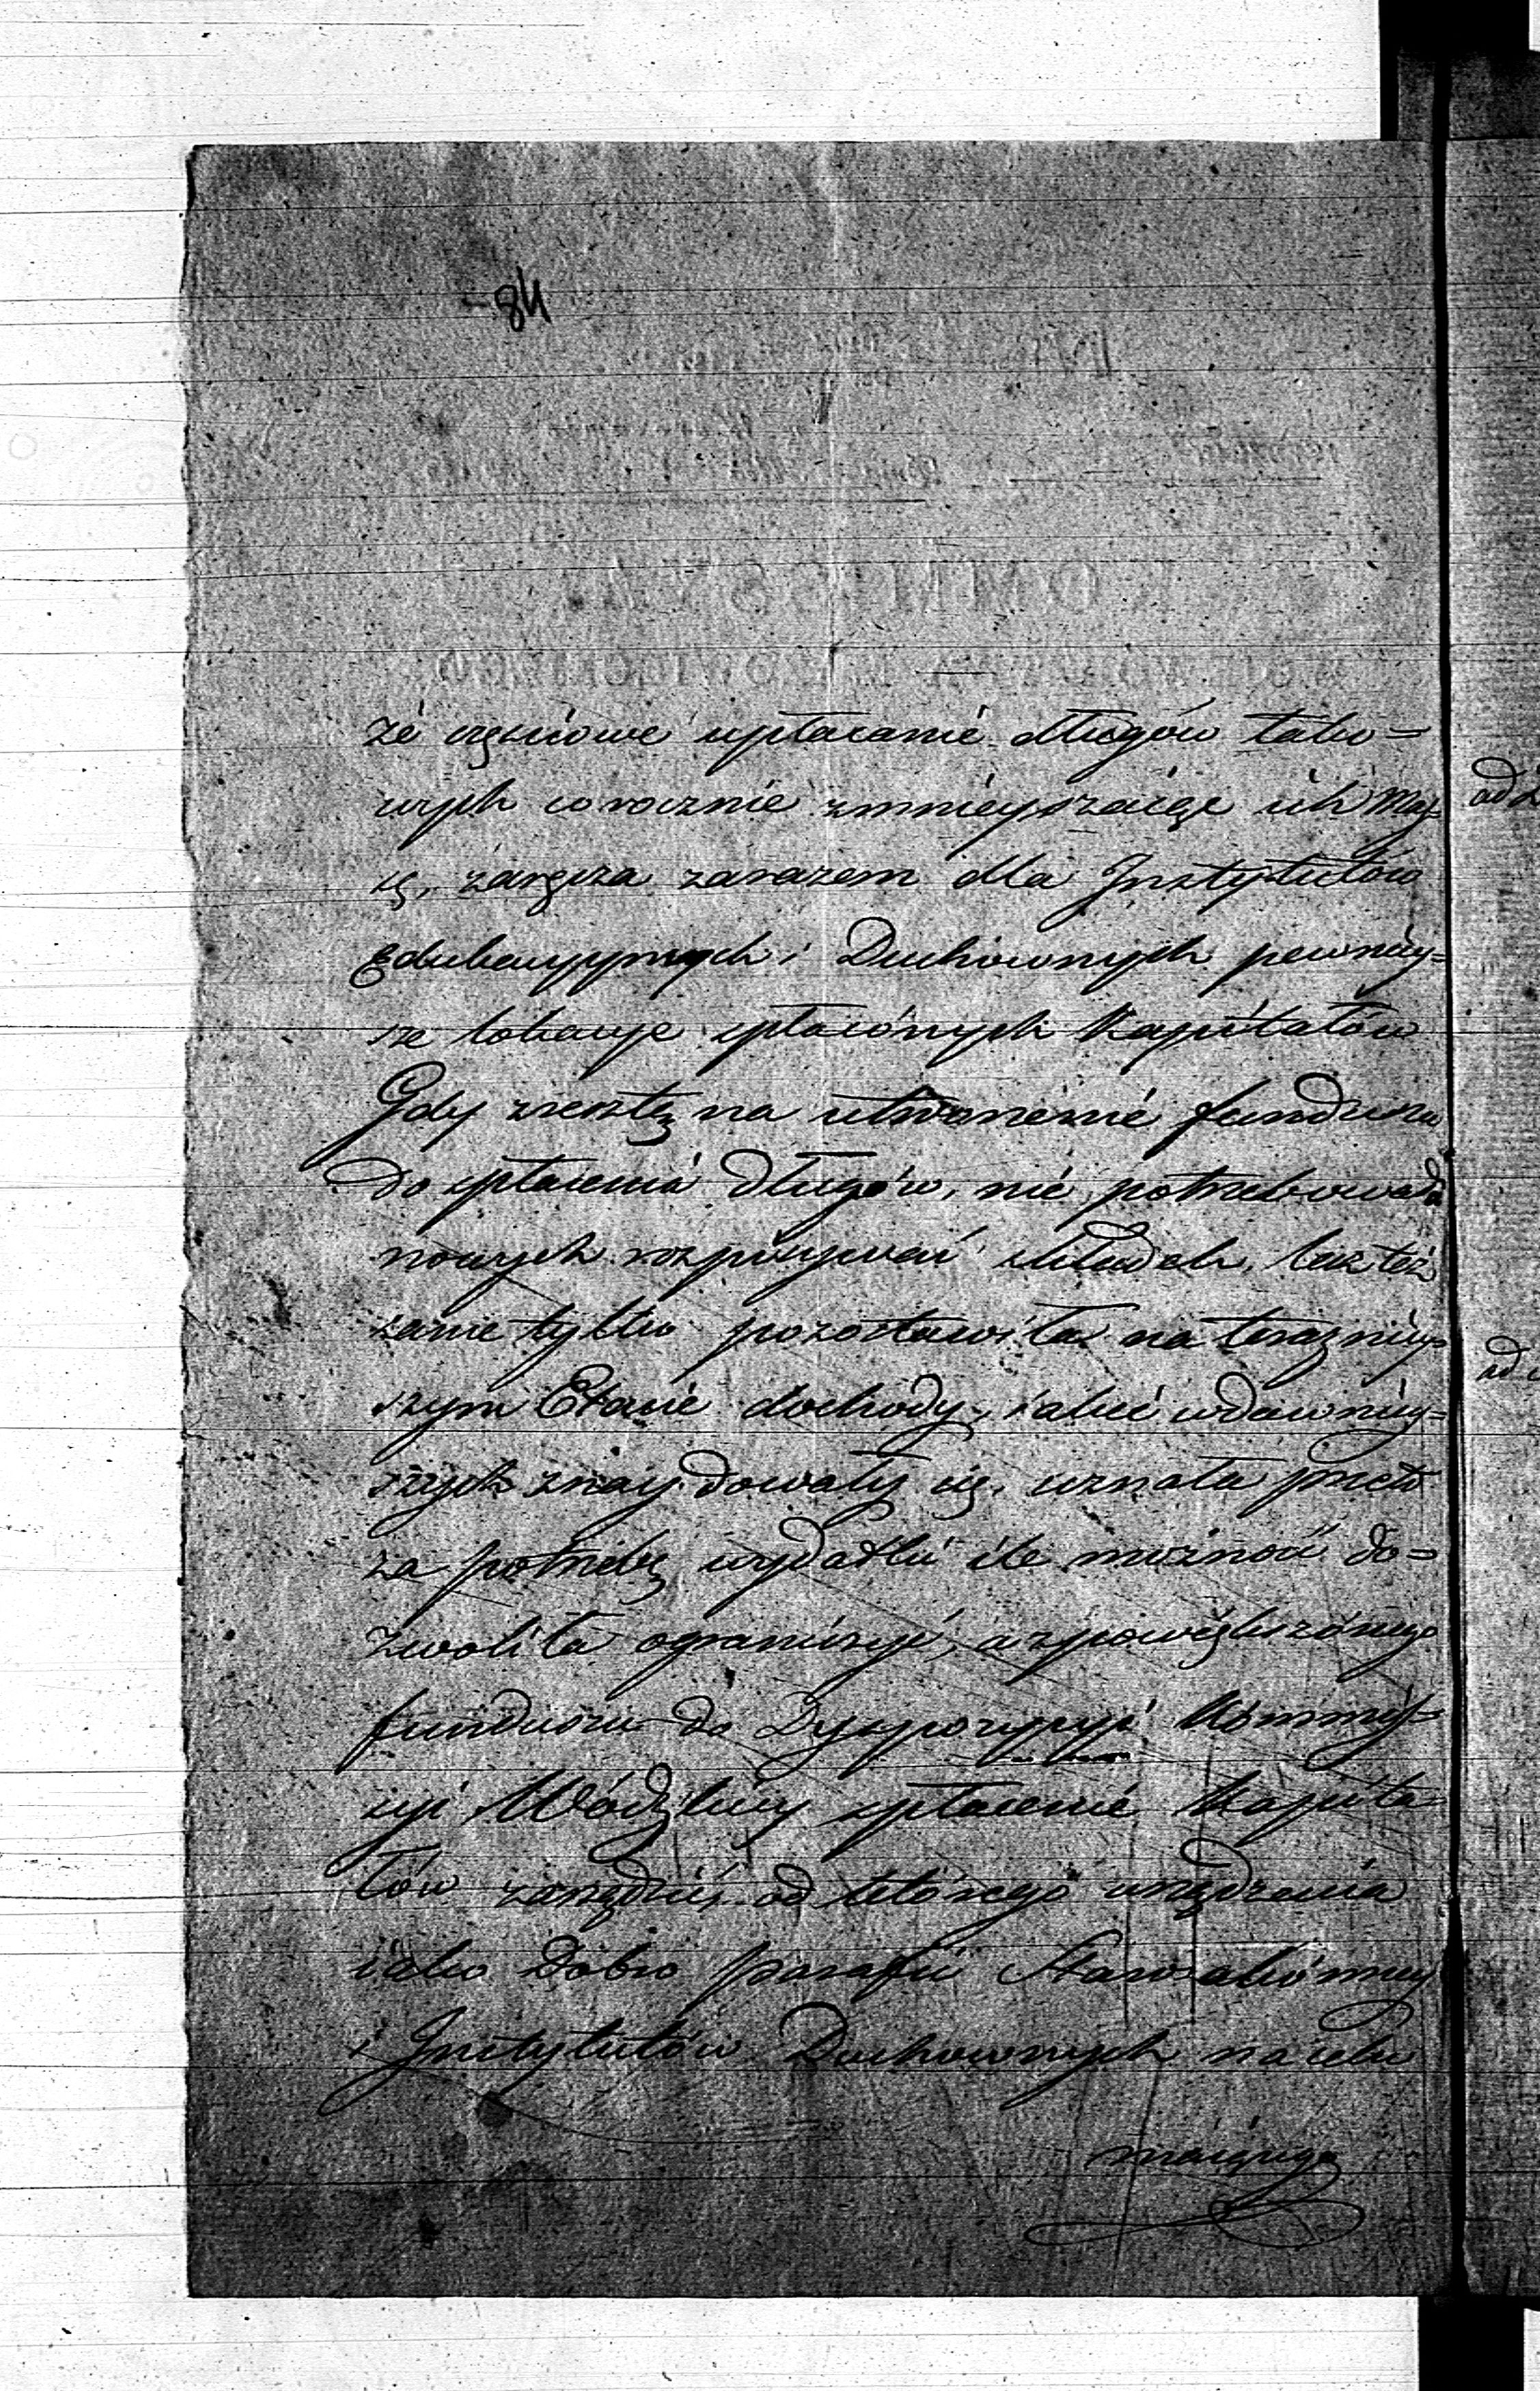 - 84
że częściowe upłacanie długów tako-
wych corocznie zmnieyszaiąc ich Mas-
sę, zaręcza zarazem dla Jnstytutów
Edukacyynych i Duchownych pewniey-
sze lokacye spłaconych Kapitałów
Gdy zresztą na utworzenie funduszu
do spłacenia długów, nie potrzebowała
nowych rozpisywać składek, lecz też
same tylko pozostawiła na teraźniey-
szym Etacie dochody, iakie w dawniey-
szych znaydowały się, uznała przeto
za potrzebę wydatki ile możność do-
zwoliła ograniczyć, a z powiększonego
funduszu do Dyspozycyi Kommis-
syi Woódzkiey spłacenie Kapita-
łów zarządzić, od którego urządzenia
iako dobro parafii Starozakonney
i Jnstytutów Duchownych na celu
maiącego
ad
ad